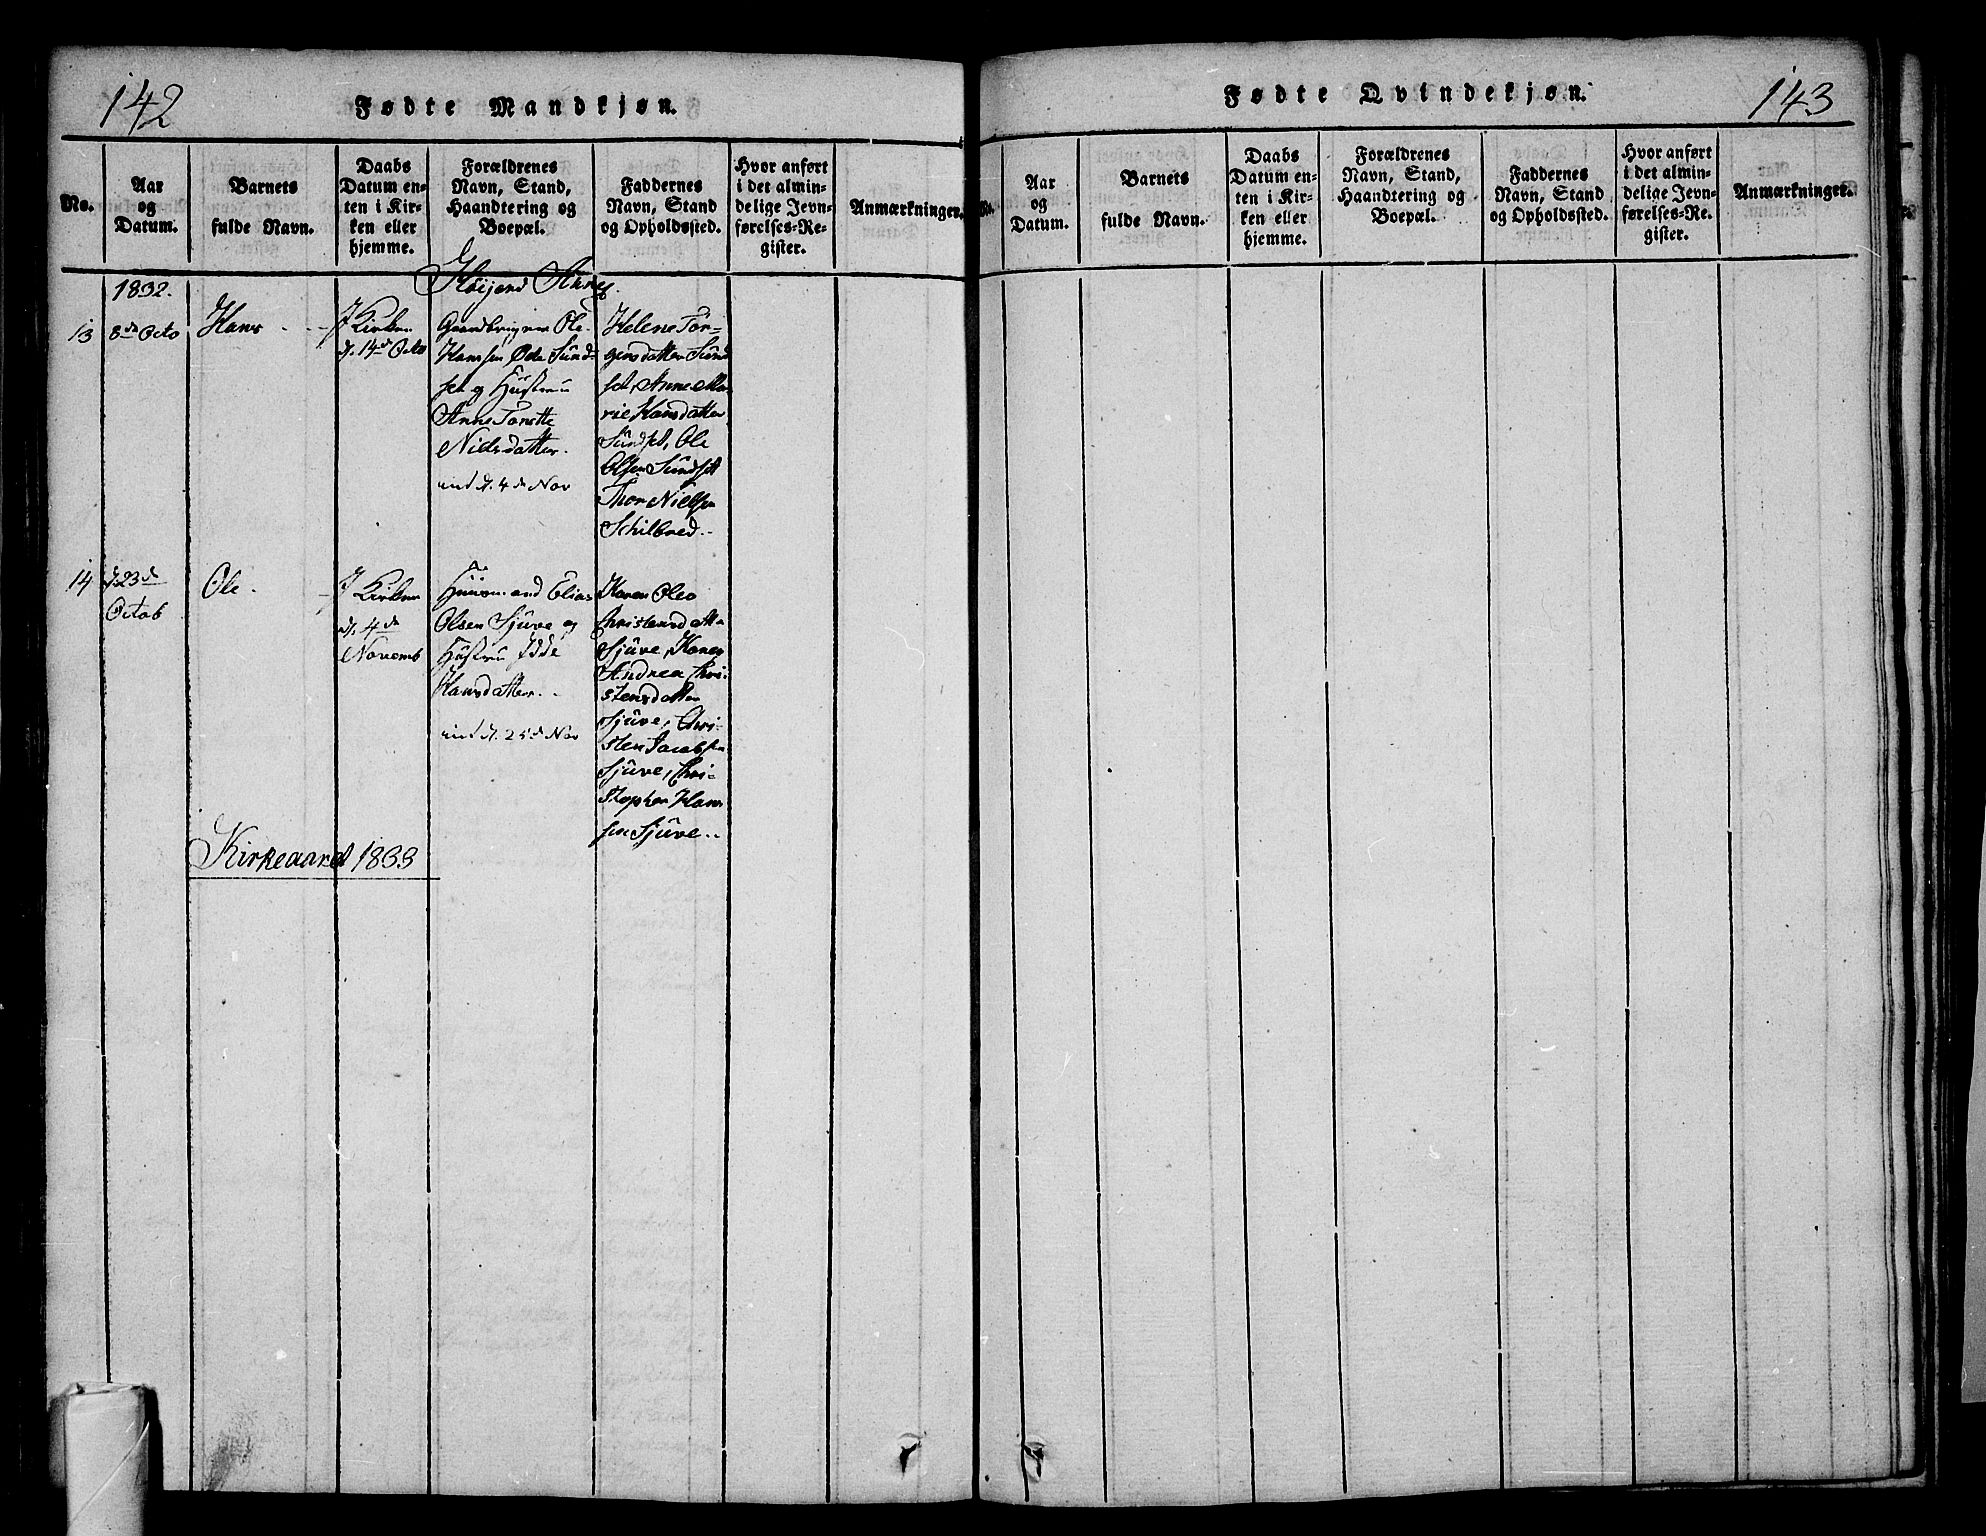 142
Fødte Mandkjøn.
No.
Aar
og
Datum.
Barnets
fulde Navn.
Daabs
Datum en-
ten i Kir-
ken eller
hjemme.
Forældrenes
Navn, Stand,
Haandtering og
Boepæl.
Faddernes
Navn, Stand
og Opholdssted.
Hvor anført
i det almin-
delige Jevn-
førelses-Re-
gister.
Anmærkninger.
1832.
13
8de Octo
Hans
I Kirken
d. 14de Octo
Gaardbruger Ole
Hanssen Sund-
set og Hustru
Anne Torette
Nielsdatter.
ind d. 4de Nov
Helene Tor-
gersdatter Sund
set, Anne Ma
rie Hansdatter
Sundset, Ole
Olsen Sundset
Thor Nielsen
Schilbred.
14
d. 23de
Octob
Ole.
I Kirken
d. 4de
Novemb
Huusmand Elias
Olsen Sjuve og
Hustru Idde
Hansdatter.
ind d. 25de Nov
Karen Olea
Christensdatter
Sjuve, Karen
Andrea Chri-
stensdatter
Sjuve, Chri-
sten Jacobsen
Sjuve, Chri-
stopher Hans
sen Sjuve.
Kirkeaaret 1833
143
Fødte Qvindekjøn.
No.
Aar
og
Datum.
Barnets
fulde Navn.
Daabs
Datum en-
ten i Kir-
ken eller
hjemme.
Forældrenes
Navn, Stand,
Haandtering og
Boepæl.
Faddernes
Navn, Stand
og Opholdssted.
Hvor anført
i det almin-
delige Jevn-
førelses-Re-
gister.
Anmærkninger.